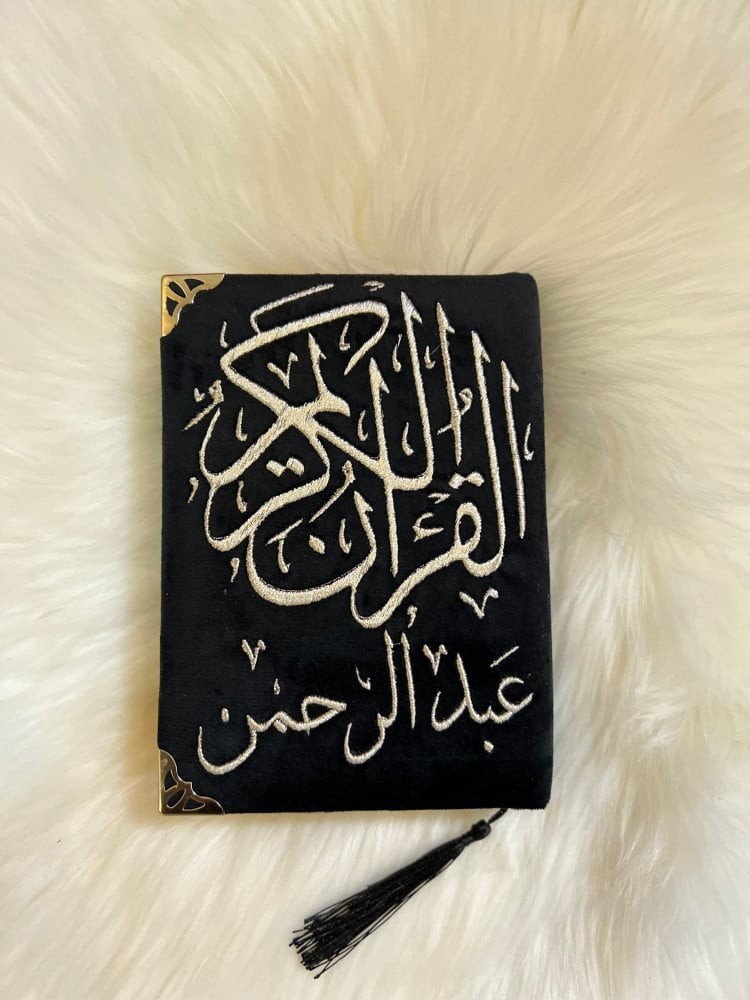 القرآن الكريم
عبد الرحمن